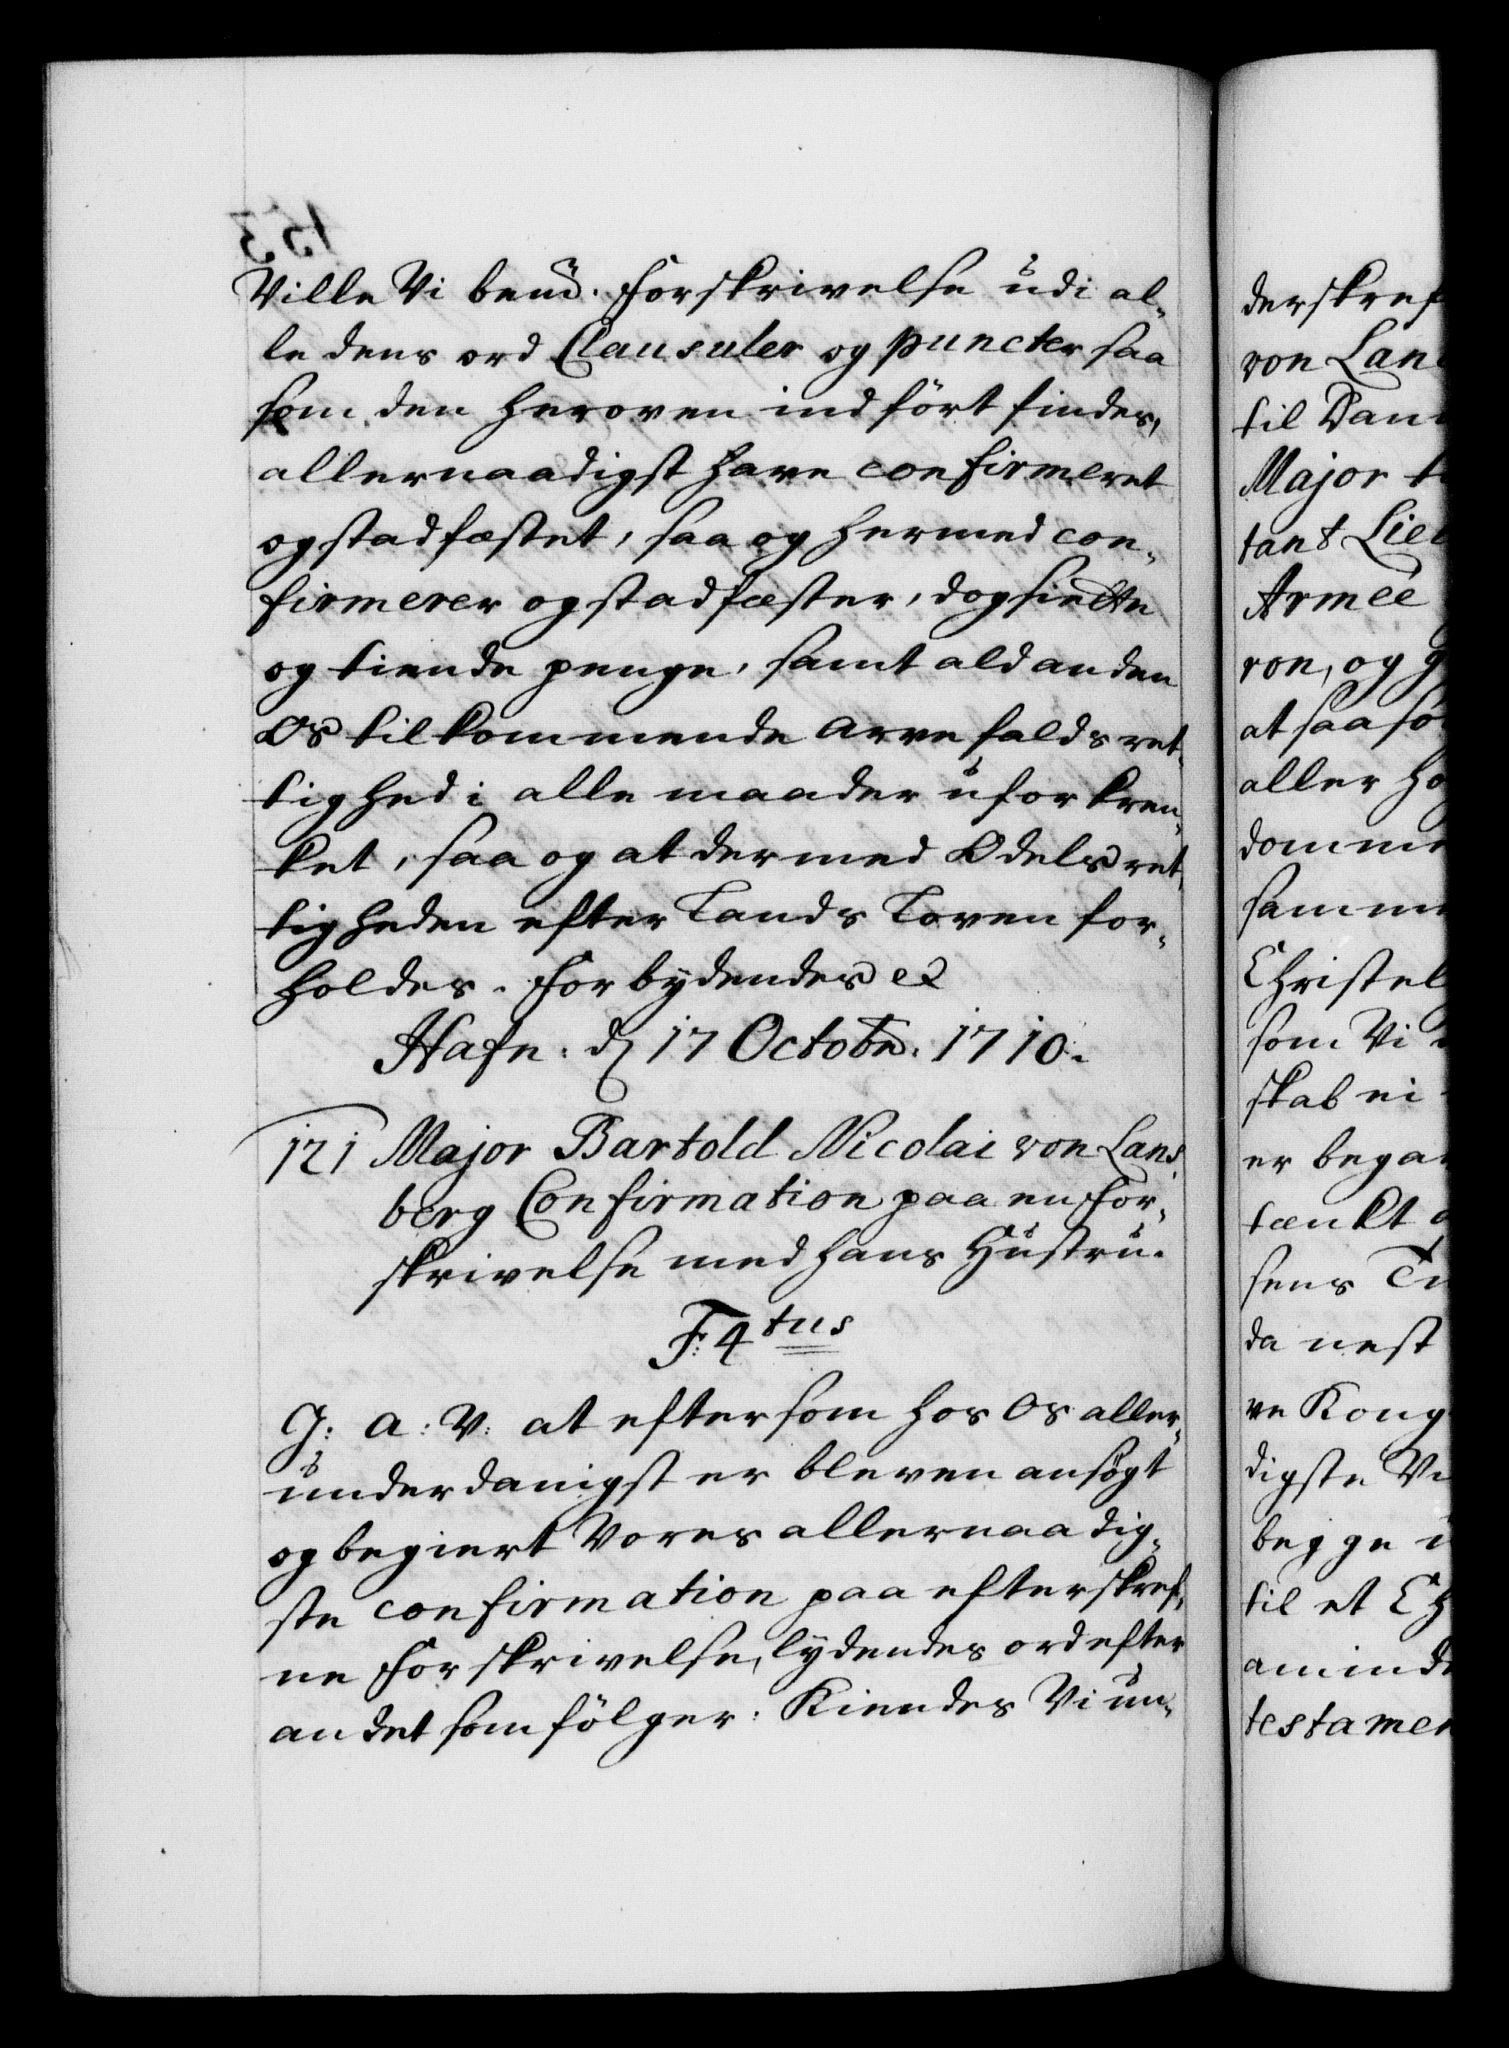 153
Ville Vi bemd. Forskrivelse udi al-
le dens ord Clausuler og puncter saa
som den heroven indført findes,
allernaadigst have confirmeret
og stadfæstet, saa og hermed con-
firmerer og stadfæster, dog siette
og tiende penge, samt ald anden
Os tilkommende Arvefalds ret-
tighed i alle maader uforkren-
ket, saa og at dermed Odels ret-
tigheden efter Lands Loven for-
holdes. Forbydendes etc
Hafn: d 17 Octobr. 1710.
121 Major Bartold Nicolai von Lans-
berg Confirmation paa en For-
skrivelse med hans Hustru.
F: 4tus
G: A: V: at eftersom hos Os aller-
underdanigst er bleven ansøgt
og begiert Vores allernaadig-
ste confirmation paa efterskref-
ne Forskrivelse, lydendes ord efter
andet som følger: Kiendes Vi un-
derskref
von Lan
til Dan
Major
tant Lieu
Armee
ron, og g
at saaso
aller ho
domme
samme
Christel
som Vi
skab ei
er began
tænkt
sens
da nest
ve Kong
digste
begge
til et Ch
testamen